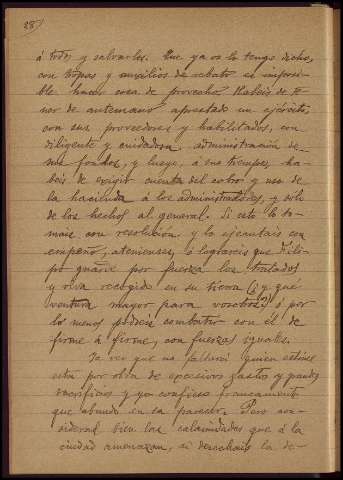 28)
á todos y salvarles. Que ya os lo tengo dicho,
con tropas y auxilios de rebato es imposi-
ble hacer cosa de provecho. Habeis de te-
ner de antemano aprestado un ejército,
con sus proveedores y habilitados, con
diligente y cuidadosa administración de
sus fondos, y luego, á sus tiempos, ha-
beis de exigir cuenta del cobro y uso de
la hacienda á los administradores, y sólo
de los hechos al general. Si esto lo to-
mais con resolución y lo ejecutais con
empeño, atenienses, ó lograreis que Fili-
po guarde por fuerza los tratados
y viva recogido en su tierra (¿y qué
ventura mayor para vosotros?) ó por
lo menos podreis combatir con él de
firme á firme, con fuerzas iguales.
Ya veo que no faltará quien estime
esta por obra de excesivos gastos y grandes
sacrificios y yo confieso francamente
que abundo en su parecer. Pero con-
siderad bien las calamidades que á la
ciudad amenazan, si desechais la de-